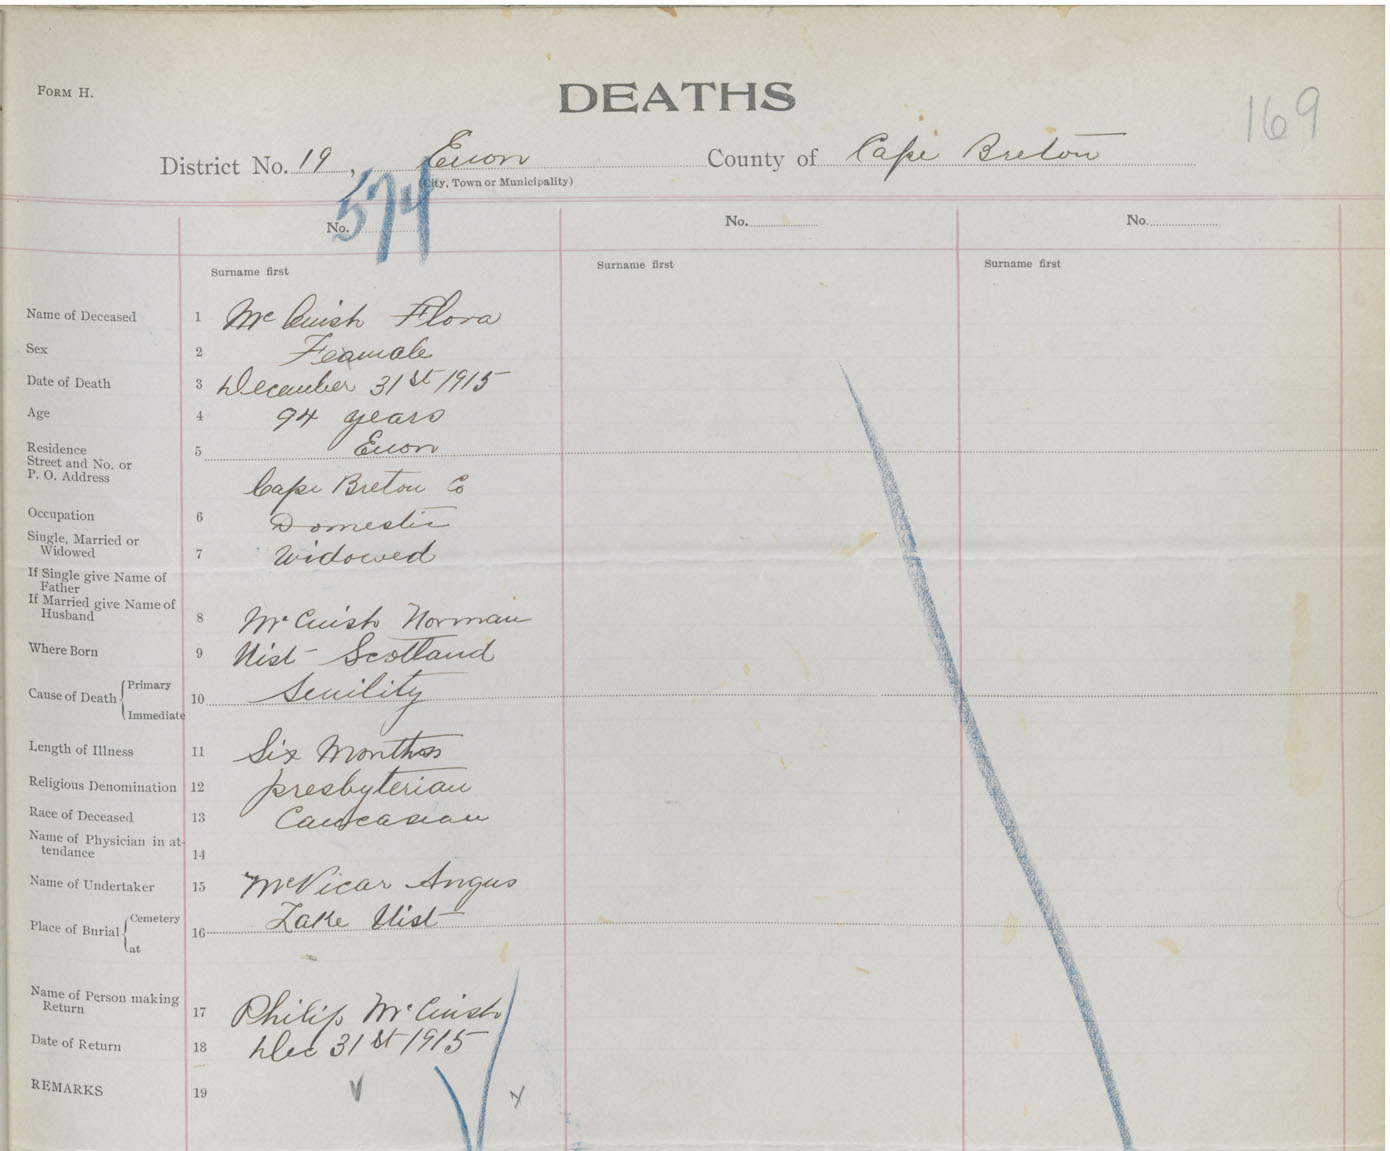 FORM H.
DEATHS
169
District No. 19, Enon County of Cape Breton
(City, Town or Municipality)
No. 574 No. No.
Surname first Surname first Surname first
Name of Deceased 1 Mc Cuish Flora
Sex 2 Feamale
Date of Death 3 December 31st 1915
Age 4 94 years
Residence 5 Enon
Street and No. or
P. O. Address Cape Breton Co
Occupation 6 Domestic
Single, Married or
Widowed 7 Widowed
If Single give Name of
Father
If Married give Name of
Husband 8 Mc Cuish Norman
Where Born 9 Uist Scotland
Cause of Death { Primary 10 Senility
Immediate
Length of Illness 11 Six Months
Religious Denomination 12 presbyterian
Race of Deceased 13 Caucasian
Name of Physician in at-
tendance 14
Name of Undertaker 15 McVicar Angus
Place of Burial { Cemetery 16 Lake Uist
at
Name of Person making
Return 17 Philip Mc Cuish
Date of Return 18 Dec 31st 1915
REMARKS 19